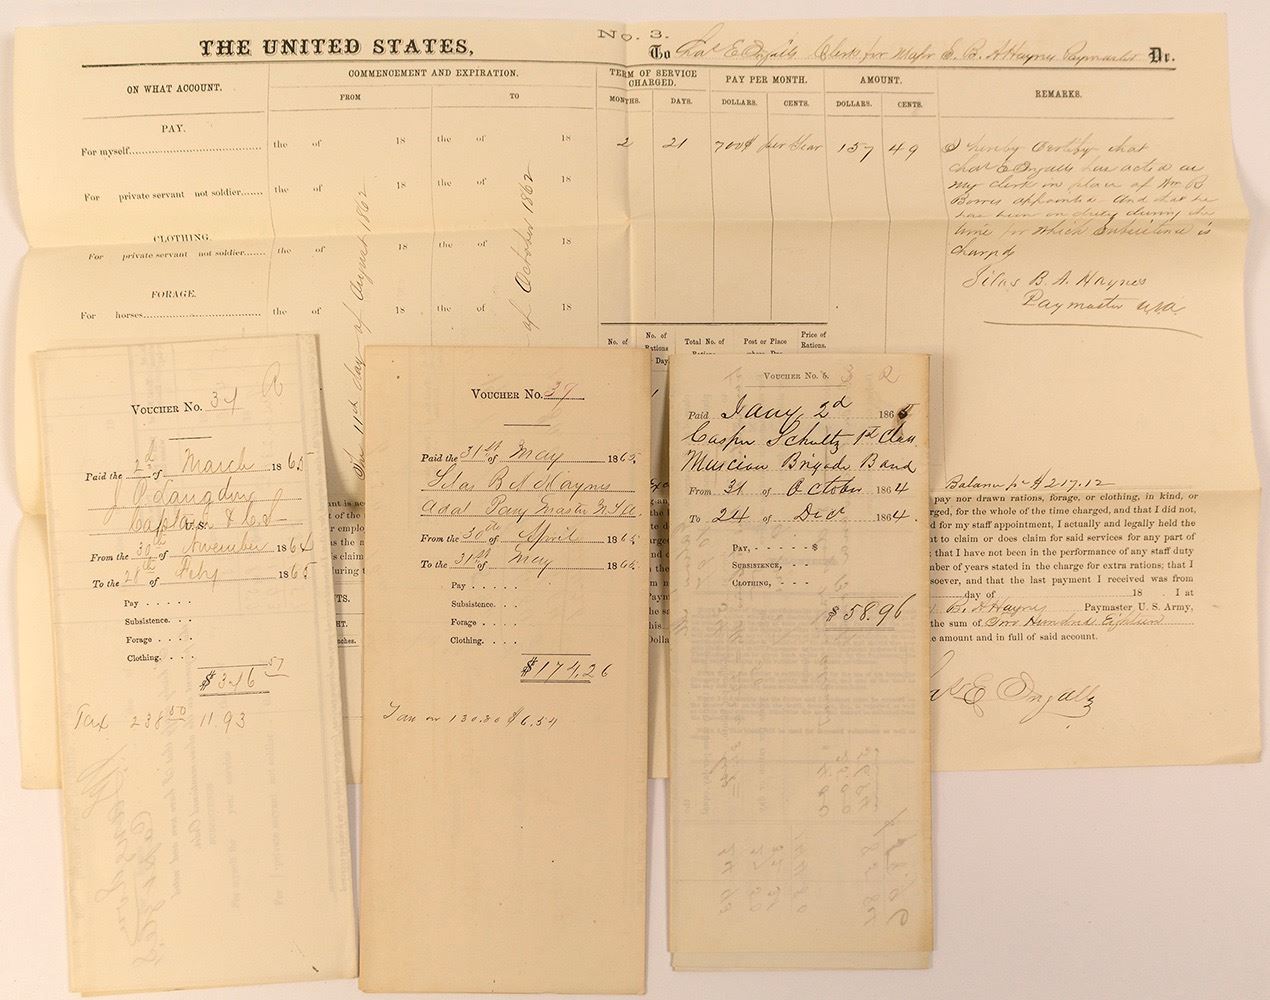 No. 3.
THE UNITED STATES,
To Chas E Ingalls Clerk for Major S. B. A Haynes Paymaster Dr.
ON WHAT ACCOUNT.
COMMENCEMENT AND EXPIRATION.
FROM
TO
TERM OF SERVICE CHARGED.
MONTHS.
DAYS.
PAY PER MONTH.
DOLLARS.
CENTS.
AMOUNT.
DOLLARS.
CENTS.
REMARKS.
PAY.
For myself
the of 18 the of 18
2 21 700$ per Year 157 49
For private servant not soldier
the of 18 the of 18
CLOTHING.
For private servant not soldier
the of 18 the of 18
FORAGE.
For horses
the of 18 the of 18
the 11th day of August 1862
of October 1862
I hereby Certify that
Chas E Ingalls has acted as
my clerk in place of Wm B
appointed And that he
has been on duty during the
time for which subsistence is
charged
Silas B. A. Haynes
Paymaster USA
No. of
No. of Rations
Day
Total No. of Rations
Post or Place
Price of Rations.
Balance pr $217.12
pay nor drawn rations, forage, or clothing, in kind, or
rged, for the whole of the time charged, and that I did not,
d for my staff appointment, I actually and legally held the
nt to claim or does claim for said services for any part of
; that I have not been in the performance of any staff duty
mber of years stated in the charge for extra rations; that I
soever, and that the last payment I received was from
day of 18 . I at
B. A Haynes Paymaster U. S. Army,
the sum of Two Hundred Eighteen
e amount and in full of said account.
E Ingalls
VOUCHER No. 34
Paid the 2d of March 1865
J P Langdon
Captain & C.S.
U.S.
From the 30th of November 1864
To the 28th of Feby 1865
Pay
Subsistence
Forage
Clothing
$346 57
Tax 238 50 11.93
VOUCHER No. 37
Paid the 31st of May 1865
Silas B A Haynes
Addl Pay Master U.S.A.
From the 30th of April 1865
To the 31st of May 1865
Pay
Subsistence
Forage
Clothing
$174.26
Tax on 130.80 $6.54
VOUCHER No. 5. 3
Paid Jany 2d 1865
Casper Schultz 1st Class
Musician Brigade Band
From 31 of October 1864
To 24 of Dec 1864
PAY, $
SUBSISTENCE,
CLOTHING,
$58.96